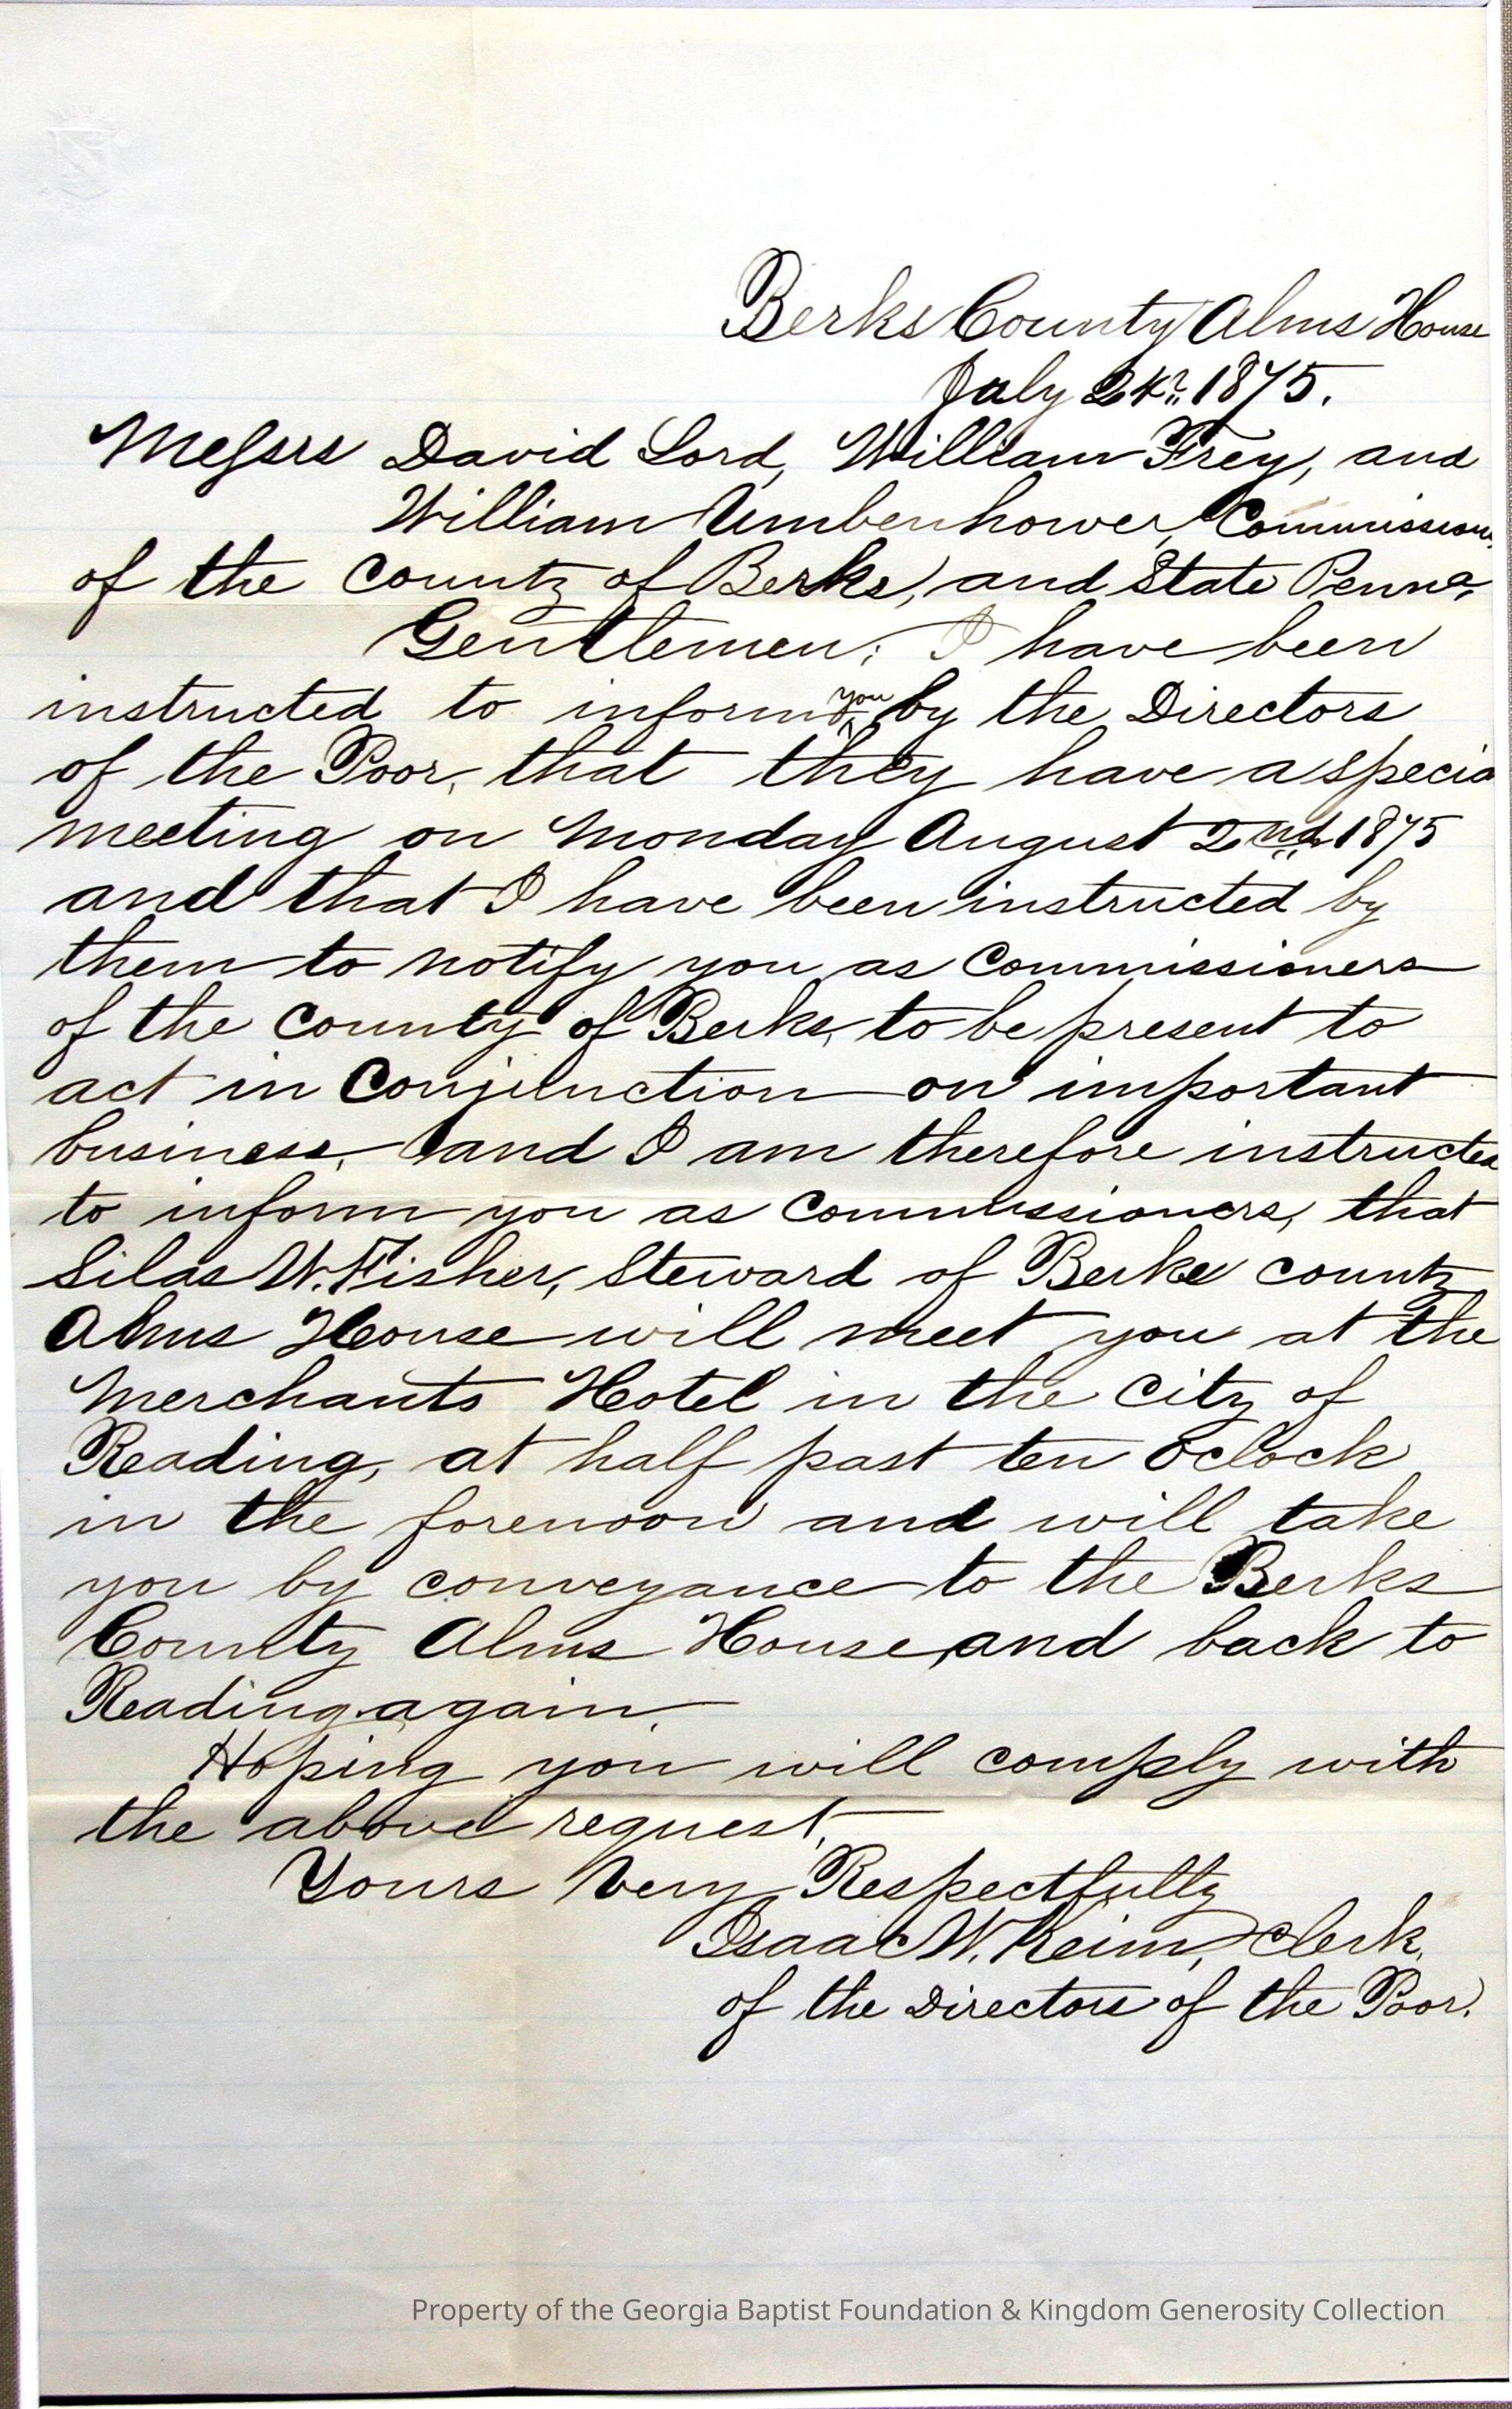 Berks County Alms House
July 24th 1875.
Messrs David Lord, William Frey, and
William Umbenhower, Commission
of the County of Berks, and State Penna,
Gentlemen; I have been
instructed to inform you by the Directors
of the Poor, that they have a specia
meeting on Monday August 2nd 1875
and that I have been instructed by
them to notify you as Commissioners
of the County of Berks, to be present to
act in Conjunction on important
business, and I am therefore instructed
to inform you as Commissioners, that
Silas W. Fisher, Steward of Berks County
Alms House will meet you at the
Merchants Hotel in the City of
Reading, at half past ten Oclock
in the forenoon and will take
you by conveyance to the Berks
County Alms House, and back to
Reading again.
Hoping you will comply with
the above request,
Yours Very Respectfully
Isaac W. Keim, Clerk,
of the Directors of the Poor.
Property of the Georgia Baptist Foundation & Kingdom Generosity Collection